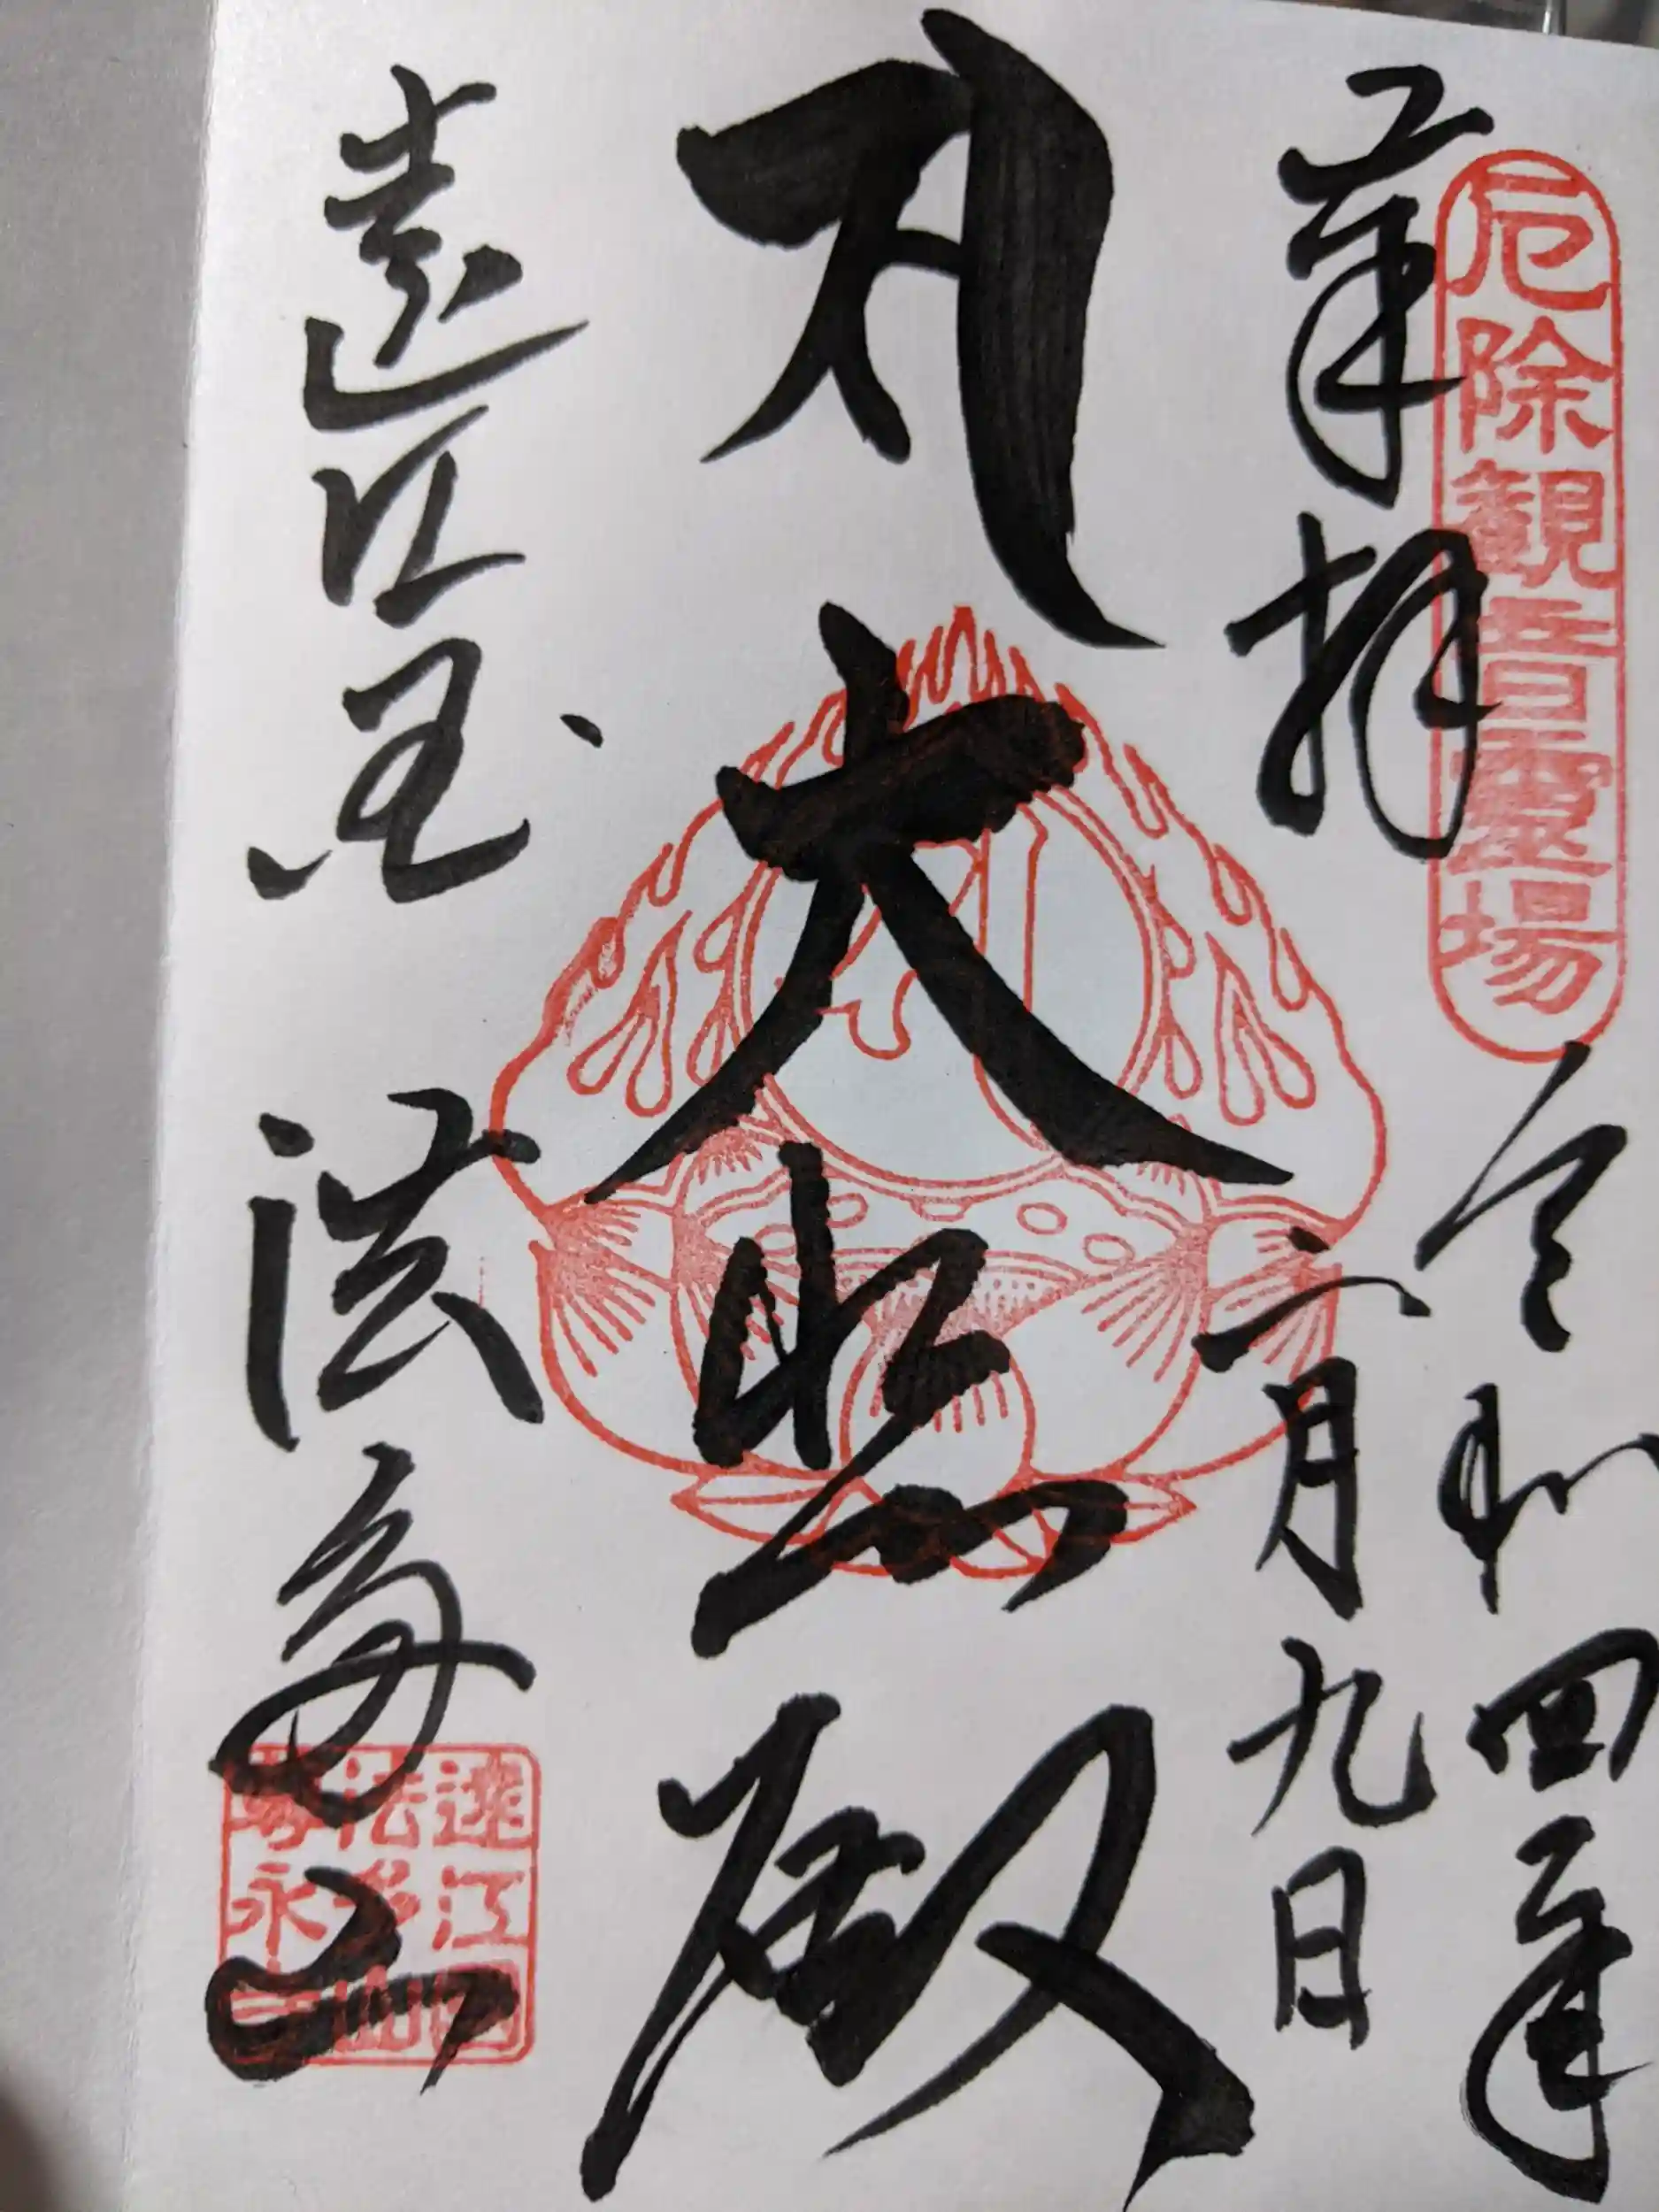 厄除観音霊場
奉拝
令和四年
二月九日
大悲殿
遠江国
法多山
遠江国
法多山
尊永寺